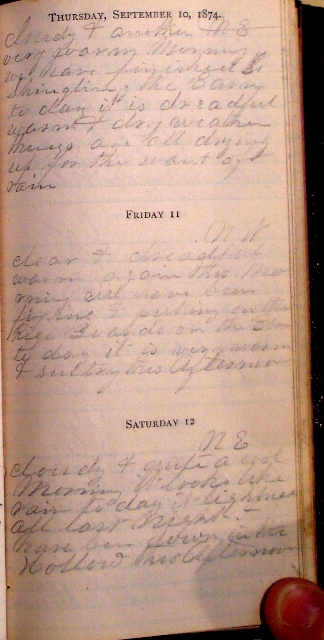 THURSDAY, SEPTEMBER 10, 1874.
cloudy & another N E
very warm Morning
we have finished
Shingling the Barn
to day it is dreadful
warm & dry weather
things are all drying
up for the want of
rain
FRIDAY 11
N W
clear & dreadful
warm again this Mo
rning we have been
& putting on the
on the Barn
to day it is very warm
& sultry this Afternoon
SATURDAY 12
N E
cloudy & quite a cool
Morning it looks like
rain to day it lightned
all last Night
have been down in the
Hollow this Afternoon